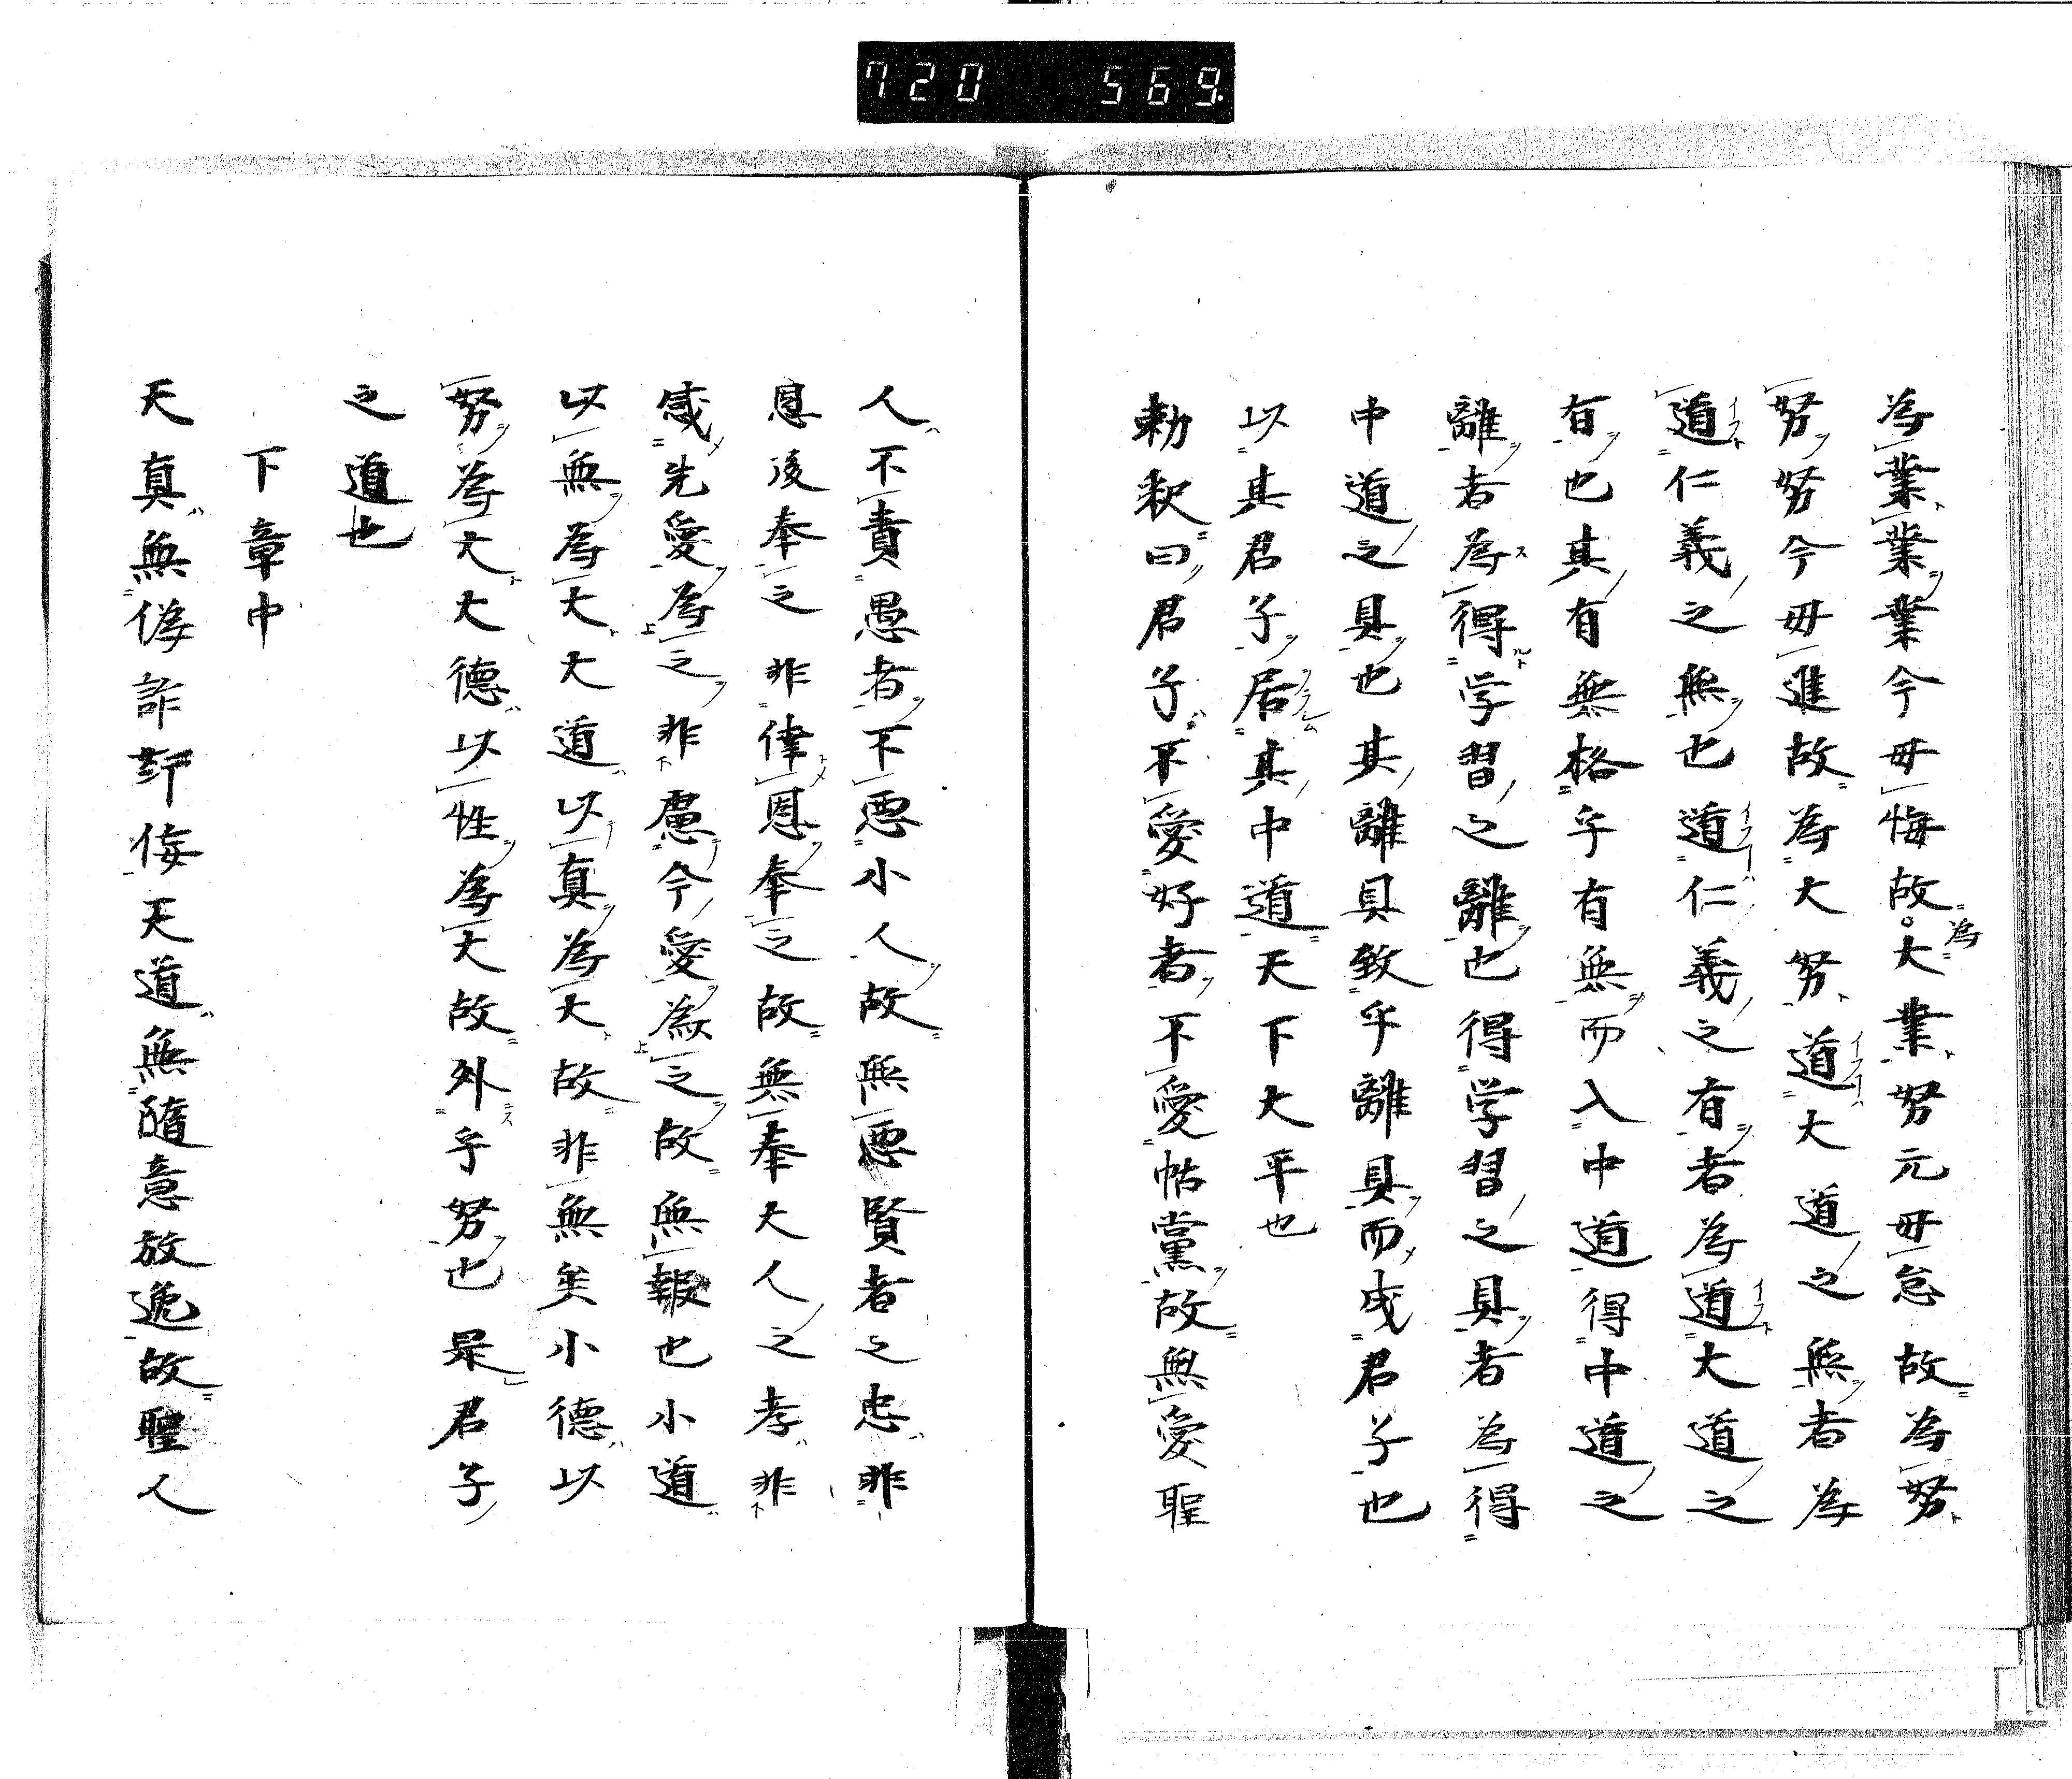 720 569.
為業業業今毋悔故為大業努元毋怠故為努
努努今毋進故為大努道大道之無者為
道仁義之無也道仁義之有者為道大道之
有也其有無格乎有無而入中道得中道之
離者為得学習之離也得学習之具者為得
中道之具也其離具致乎離具而成君子也
以其君子居其中道天下大平也
勅釈曰君子不愛好者不愛帖黨故無愛聖
人不責愚者不悪小人故無悪賢者之忠非
恩後奉之非俥恩奉之故無奉大人之孝非
感先愛為之非慮今愛為之故無報也小道
以無為大大道以真為大故非無矣小德以
努為大大德以性為大故外乎努也是君子
之道也
下章中
天真無偽詐誶侮天道無随意放逸故聖人